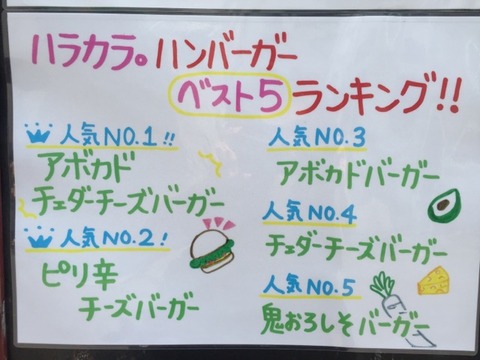 ハラカラ。ハンバーガー
ベスト5ランキング!!
人気NO.1!!
アボカド
チェダーチーズバーガー
人気NO.2!
ピリ辛
チーズバーガー
人気NO.3
アボカドバーガー
人気NO.4
チェダーチーズバーガー
人気NO.5
鬼おろしそバーガー